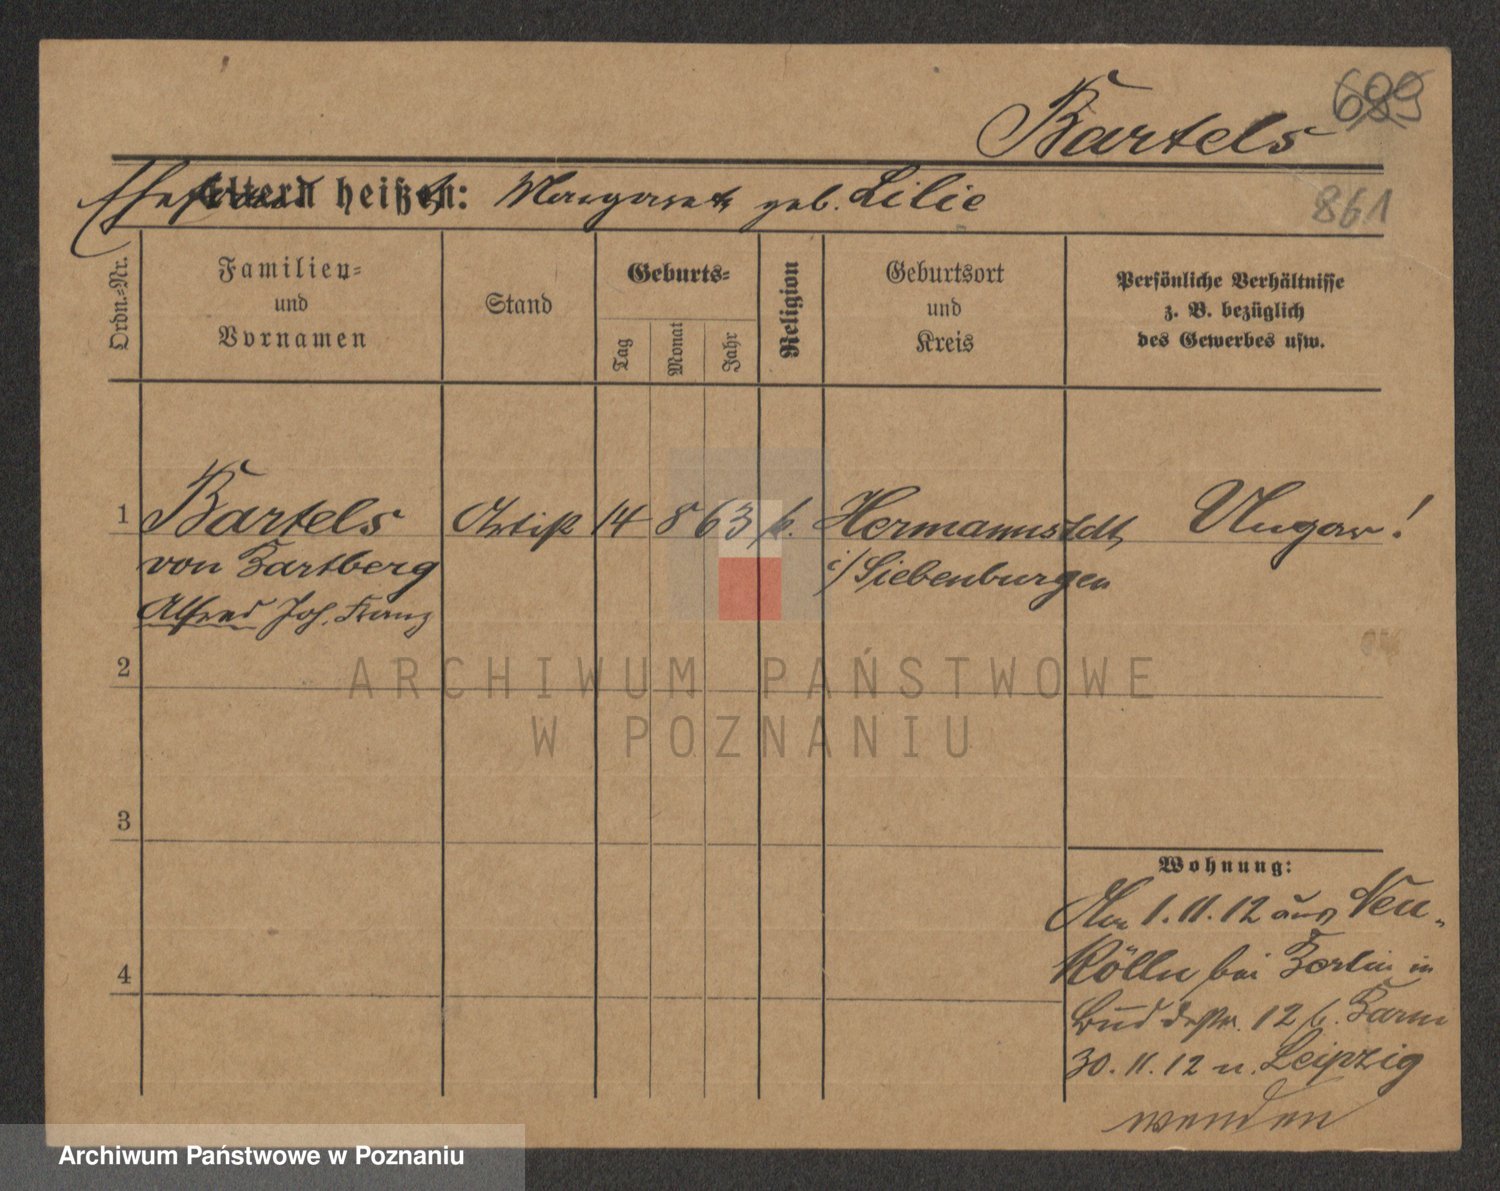 Bartels
689
Ehefrau
Altern heißen: Margarete geb. Lilie
861
Ordn.-Nr.
Familien-
und
Vornamen
Stand
Geburts-
Tag
Monat
Jahr
Religion
Geburtsort
und
Kreis
Persönliche Verhältnisse
z. B. bezüglich
des Gewerbes usw.
1 Bartels Artist 14 8 63 k. Hermannstdt, Ungar!
von Bartberg i/Siebenburgen
Alfred Joh. Franz
2
ARCHIWUM PAŃSTWOWE
W POZNANIU
3
Wohnung:
1. 11. 12 aus Neu-
Kölln bei Berlin in
4
12 b.
30. 11. 12 n. Leipzig
wenden
Archiwum Państwowe w Poznaniu